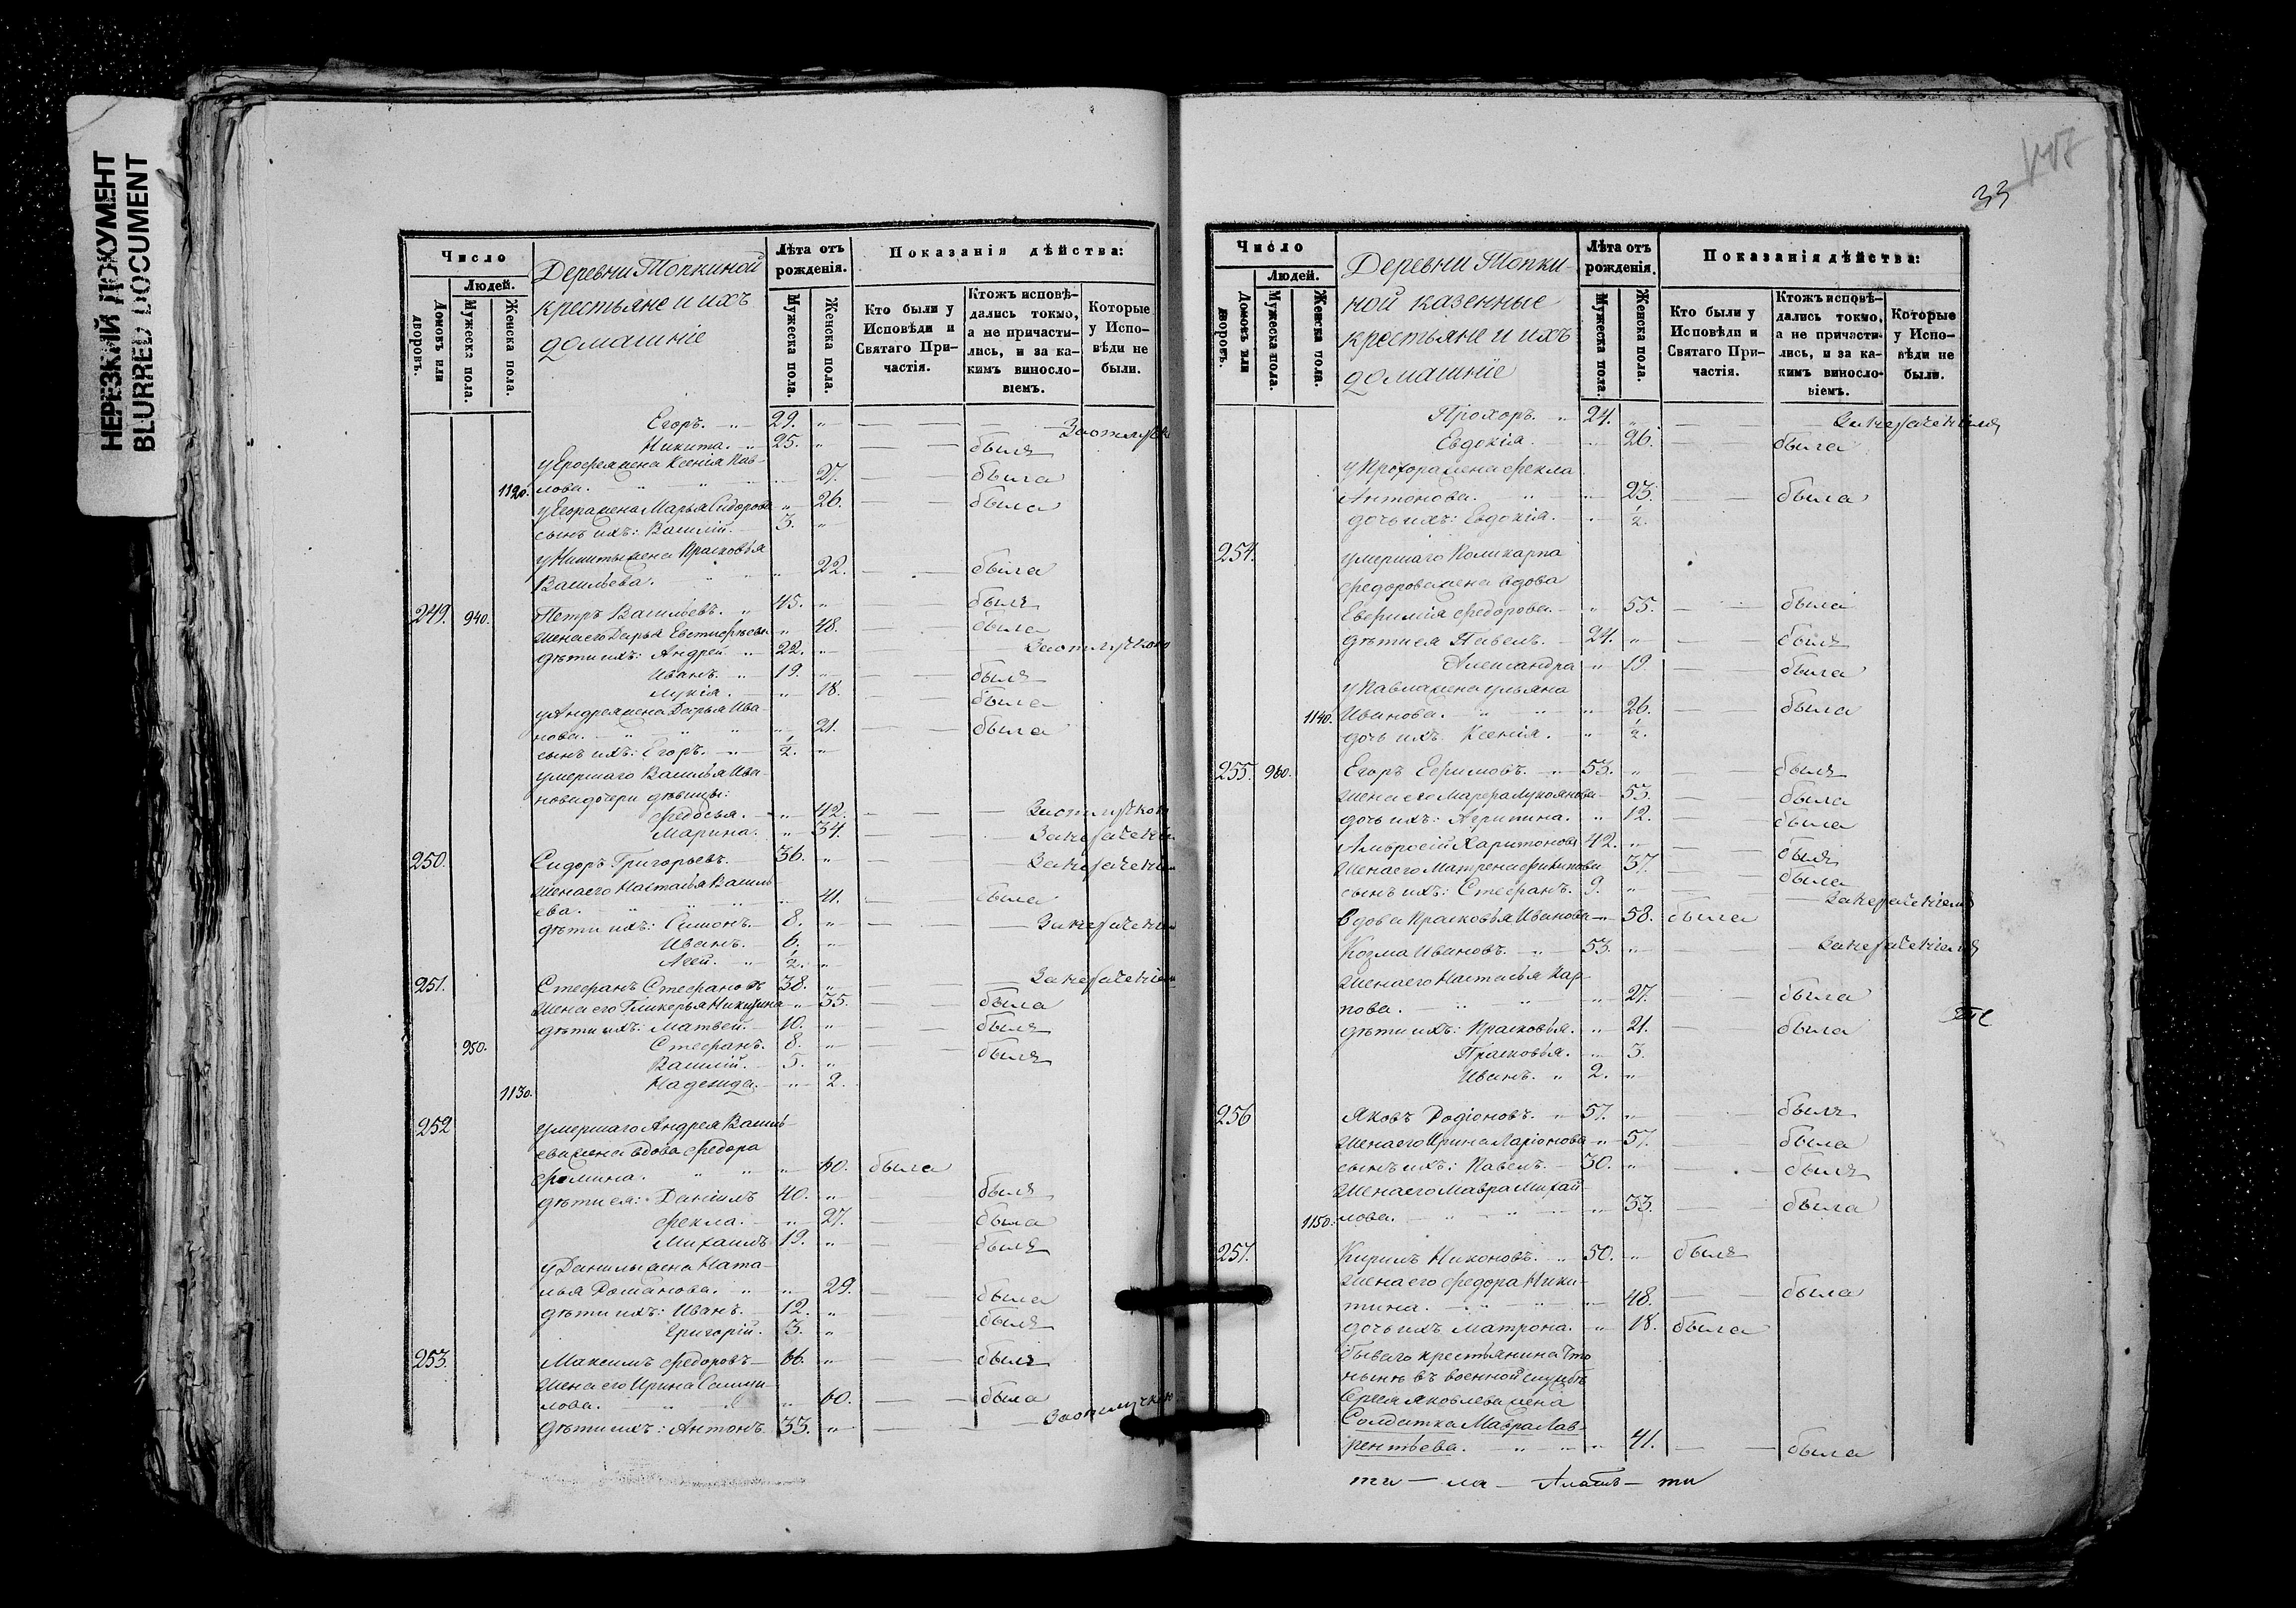 НЕРЕЗКИЙ ДОКУМЕНТ
BLURRED DOCUMENT
Число
Людей.
Домовъ или дворовъ.
Мужеска пола.
Женска пола.
Деревни Топкиной
крестьяне и ихъ
домашніе
Лѣта отъ рожденія.
Мужеска пола.
Женска пола.
Показанія дѣйства:
Кто были у Исповѣди и Святаго Причастія.
Ктожъ исповѣдались токмо, а не причастились, и за какимъ винословіемъ.
Которые у Исповѣди не были.
Егоръ. 29.
Никита. 25. былъ
у Ерофея жена Ксенія Пав-
1120. лова. 27. была
у Егора жена Марья Сидорова 26. была
сынъ ихъ: Василій. 3.
у Никиты жена Прасковья
Васильева. 22. была
249. 940. Петръ Васильевъ. 45. былъ
жена его Дарья 48. была
дѣти ихъ: Андрей 22. За отлучкою
Иванъ. 19. былъ
Лукія. 18. была
у Андрея жена Дарья Ива-
нова. 21. была
сынъ ихъ: Егоръ. 1/2.
умершаго Василья Ива-
нова дочери дѣвицы:
Федосья. 42. За отлучкою
Марина. 34. За нерадѣніем
250. Сидоръ Григорьевъ. 36. За нерадѣніем
жена его Наталья Василь-
ева. 41. была
дѣти ихъ: Симонъ. 8. За нерадѣніем
Иванъ. 6.
Агей. 1/2.
251. Стефанъ Стефановъ 38. За нерадѣніем
жена его Гликерья Никитина 35. была
дѣти ихъ: Матвей. 10. былъ
950. Стефанъ. 8. былъ
Василій. 5.
1130. Надежда. 2.
252 умершаго Андрея Василь-
ева жена вдова Федора
Фомина. 60. была
дѣти ея: Даніилъ 40. былъ
Фекла. 27. была
Михаилъ 19. былъ
у Данилы жена Ната-
лья Романова. 29. была
дѣти ихъ: Иванъ. 12. былъ
Григорій. 3.
253. Максимъ Федоровъ 66. былъ
жена его Ирина Самой-
лова. 60. была
дѣти ихъ: Антонъ. 33. За отлучкою
33
Число
Людей.
Домовъ или дворовъ.
Мужеска пола.
Женска пола.
Деревни Топки-
ной казенные
крестьяне и ихъ
домашніе
Лѣта отъ рожденія.
Мужеска пола.
Женска пола.
Показанія дѣйства:
Кто были у Исповѣди и Святаго Причастія.
Ктожъ исповѣдались токмо, а не причастились, и за какимъ винословіемъ.
Которые у Исповѣди не были.
Прохоръ. 24. За нерадѣніемъ
Евдокія. 26. была
у Прохора жена Фекла
Антонова. 23. была
дочь ихъ: Евдокія. 1/2.
254. умершаго Поликарпа
Федорова жена вдова
Ефимія Федорова. 55. была
дѣти ея Павелъ. 24. былъ
Александра 19. была
у Павла жена Ульяна
1140. Иванова. 26. была
дочь ихъ Ксенія. 1/2.
255. 960. Егоръ Ефимовъ. 53. былъ
жена его Марфа Лукоянова 53. была
дочь ихъ: Агрипина. 12. была
Амвросій Харитоновъ 42. былъ
жена его Матрена Филипова 37. была
сынъ ихъ: Стефанъ. 9. За нерадѣніемъ
Вдова Прасковья Иванова 58. была
Козма Ивановъ. 53. За нерадѣніемъ
жена его Наталья Кар-
пова. 27. была
дѣти ихъ: Прасковья. 21. была
Прасковья. 3.
Иванъ. 2.
256 Яковъ Родіоновъ. 57. былъ
жена его Ирина Ларіонова 57. была
сынъ ихъ: Павелъ. 30. былъ
жена его Мавра Михай-
1150. лова. 33. была
257. Кирилъ Никоновъ. 50. былъ
жена его Федора Ники-
тина. 48. была
дочь ихъ Матрона. 18. была
бываго крестьянина что
нынѣ въ военной службѣ
Сергея Яковлева жена
Солдатка Мавра Лав-
рентьева. 41. была
ти — ла —